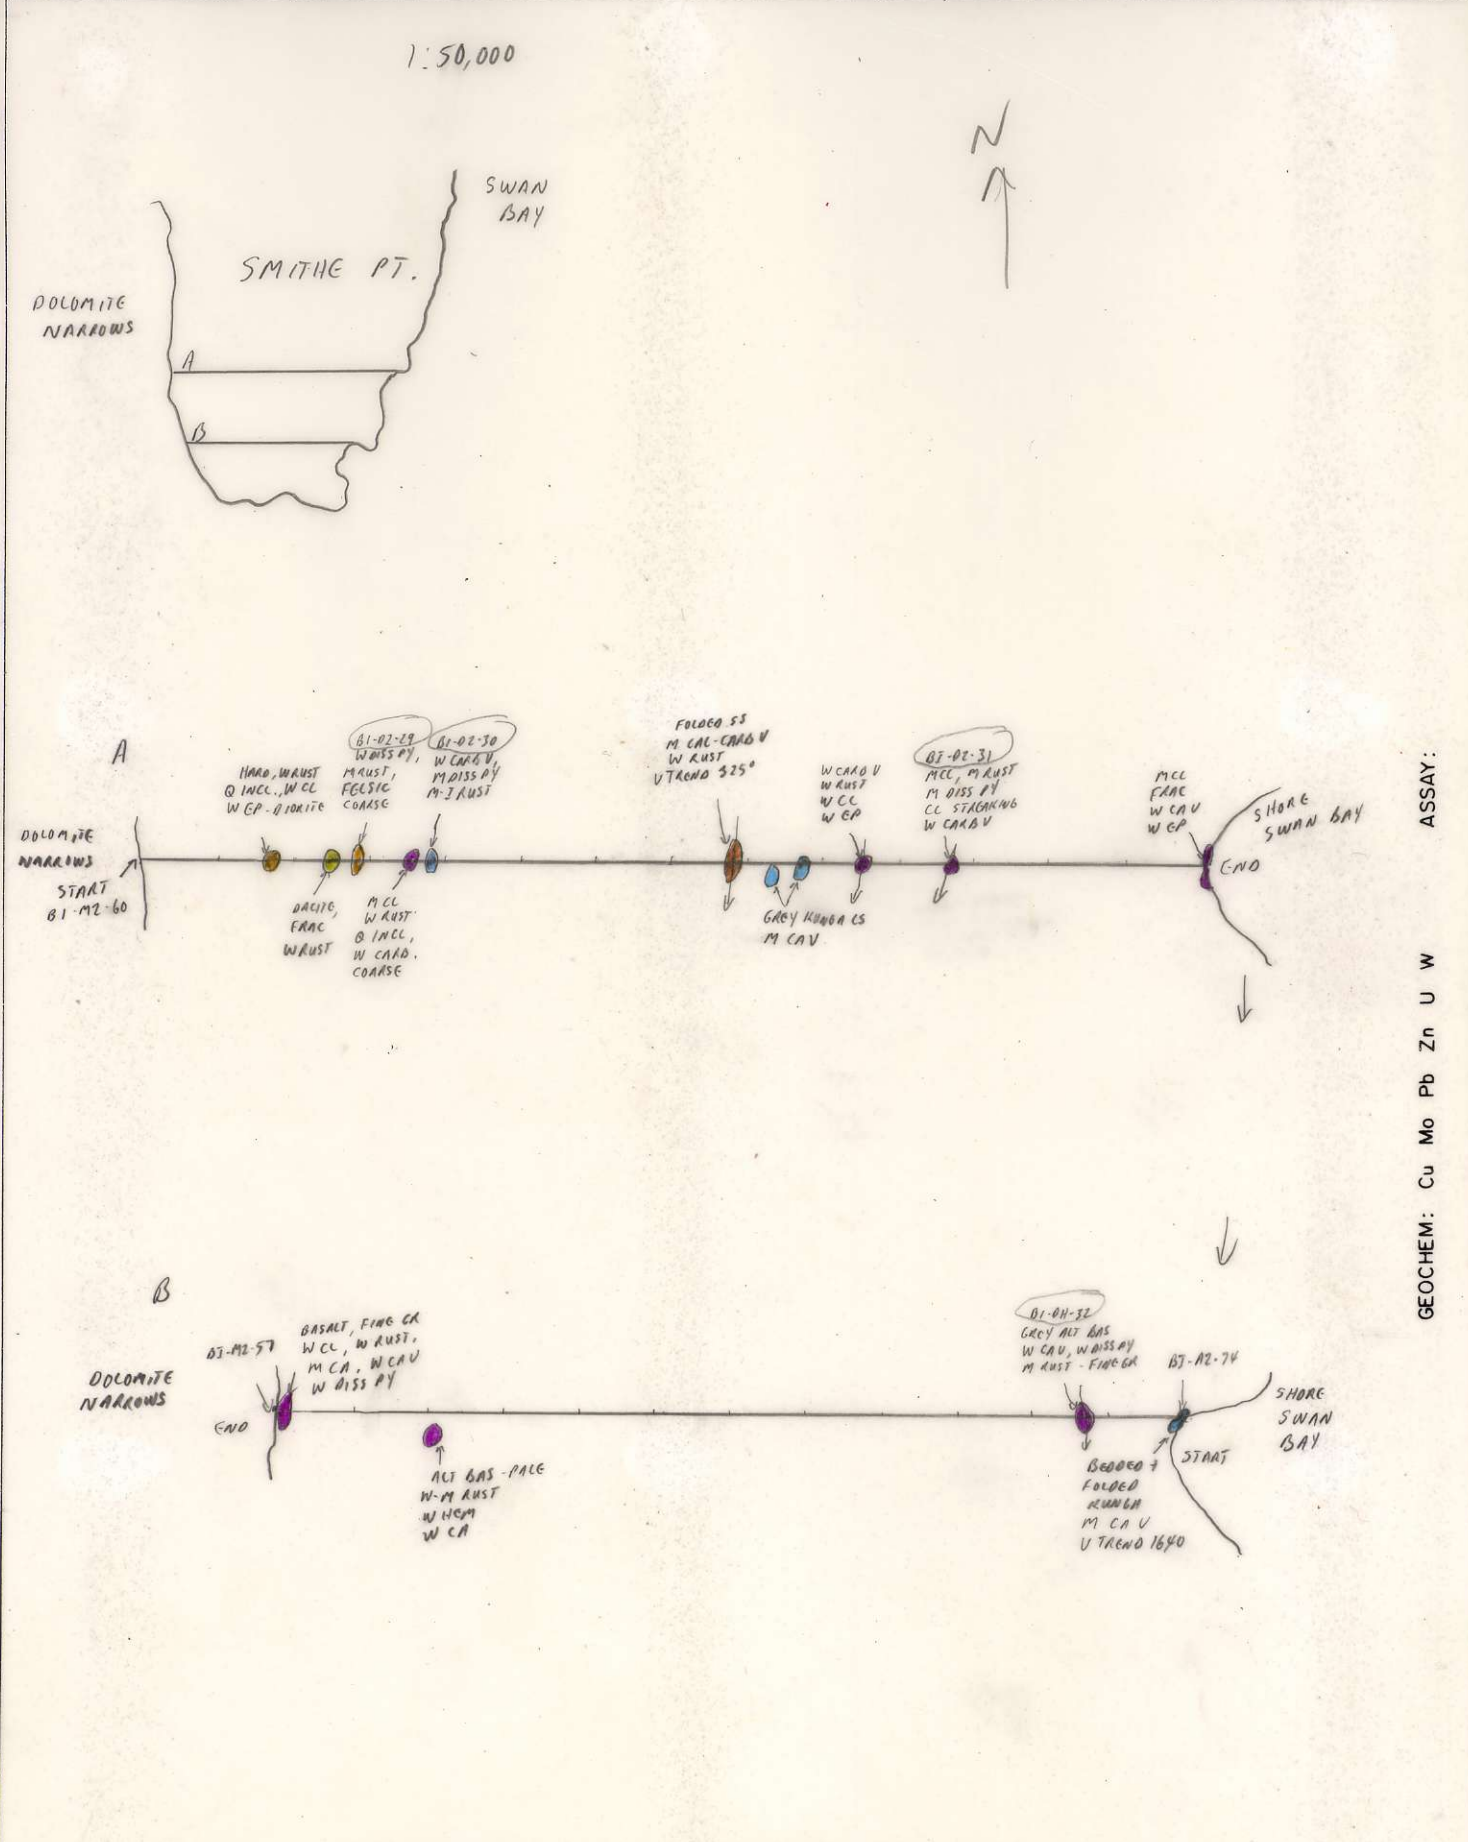 1:50,000
N
SWAN
BAY
SMITHE PT.
DOLOMITE
NARROWS
A
B
A
HARD, W RUST
Q INCL., W CL
W EP - DIORITE
BI-02-29
W DISS PY,
M RUST,
FELSIC
COARSE
BI-02-30
W CARB V,
M DISS PY
M-I RUST
FOLDED SS
M CAL-CARB V
W RUST
V TREND 325°
W CARB V
W RUST
W CL
W EP
BI-02-31
MCL, M RUST
M DISS PY
CL STREAKING
W CARB V
MCL
FRAC
W CAV
W EP
SHORE
SWAN BAY
DOLOMITE
NARROWS
START
BI-M2-60
END
DACITE,
FRAC
W RUST
MCL
W RUST
Q INCL,
W CARB.
COARSE
GREY KUNGA LS
M CAV
B
BI-M2-57
BASALT, FINE GR
W CL, W RUST,
M CA, W CAV
W DISS PY
DOLOMITE
NARROWS
END
ALT BAS - PALE
W-M RUST
W HEM
W CA
BI-OH-32
GREY ALT BAS
W CAV, W DISS PY
M RUST - FINE GR
BI-A2-74
SHORE
SWAN
BAY
START
BEDDED +
FOLDED
KUNGA
M CA V
V TREND 1640
GEOCHEM: Cu Mo Pb Zn U W ASSAY: